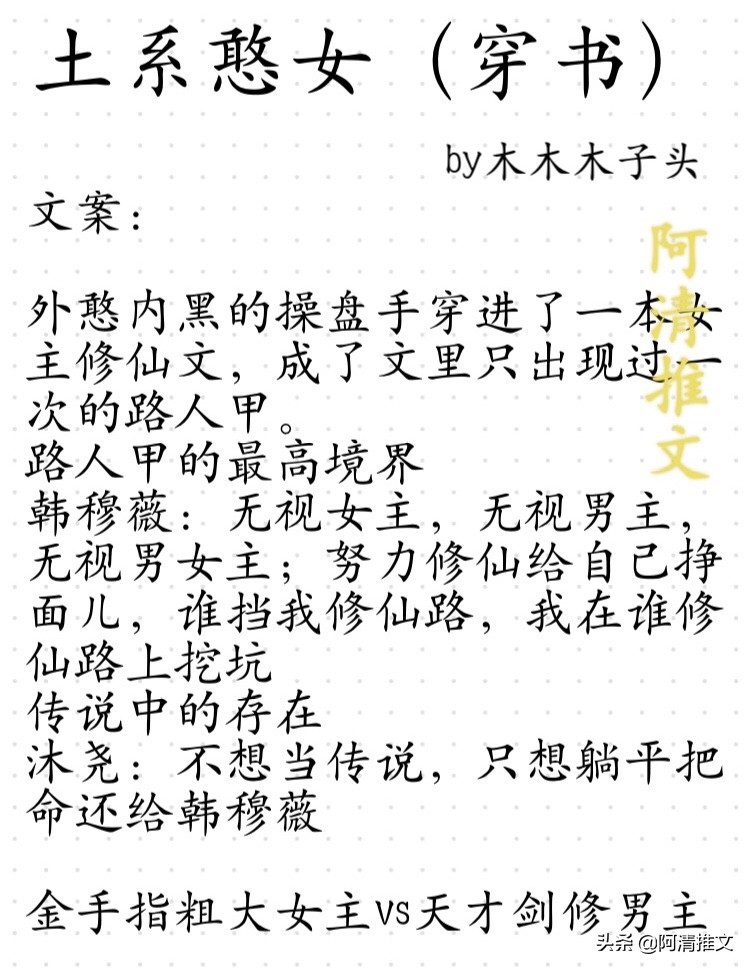 土系憨女（穿书）
by木木木子头
文案：
阿清推文
外憨内黑的操盘手穿进了一本女
主修仙文，成了文里只出现过一
次的路人甲。
路人甲的最高境界
韩穆薇：无视女主，无视男主，
无视男女主；努力修仙给自己挣
面儿，谁挡我修仙路，我在谁修
仙路上挖坑
传说中的存在
沐尧：不想当传说，只想躺平把
命还给韩穆薇
金手指粗大女主vs天才剑修男主
头条 @阿清推文